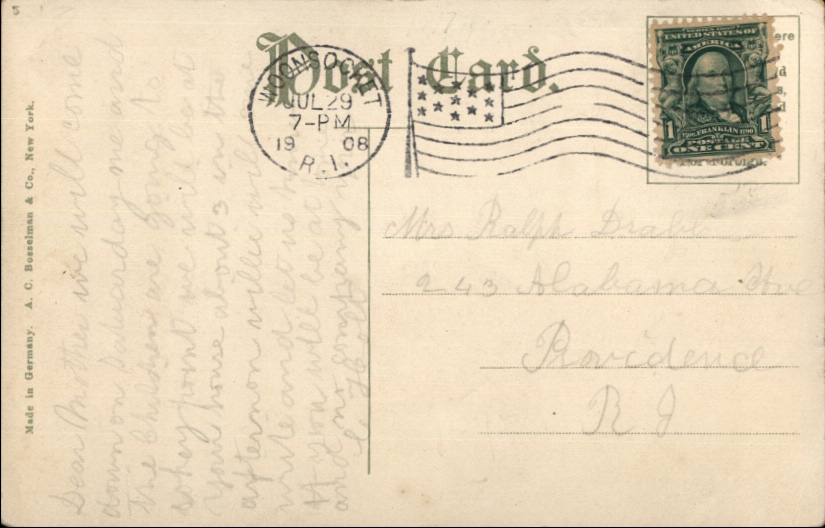 Post Card.
WOONSOCKET
JUL 29
7-PM
19 08
R.I.
UNITED STATES OF
AMERICA
FRANKLIN
POSTAGE
1 1
ONE CENT
Made in Germany. A. C. Bosselman & Co., New York.
Dear Mother we will come
down on Saturday me and
the Children are going to
point we will at
your house about 3 in the
afternoon willie will
write and let us
if you will be at
and no company
Mrs Ralph
243 Alabama Ave
Providence
R I